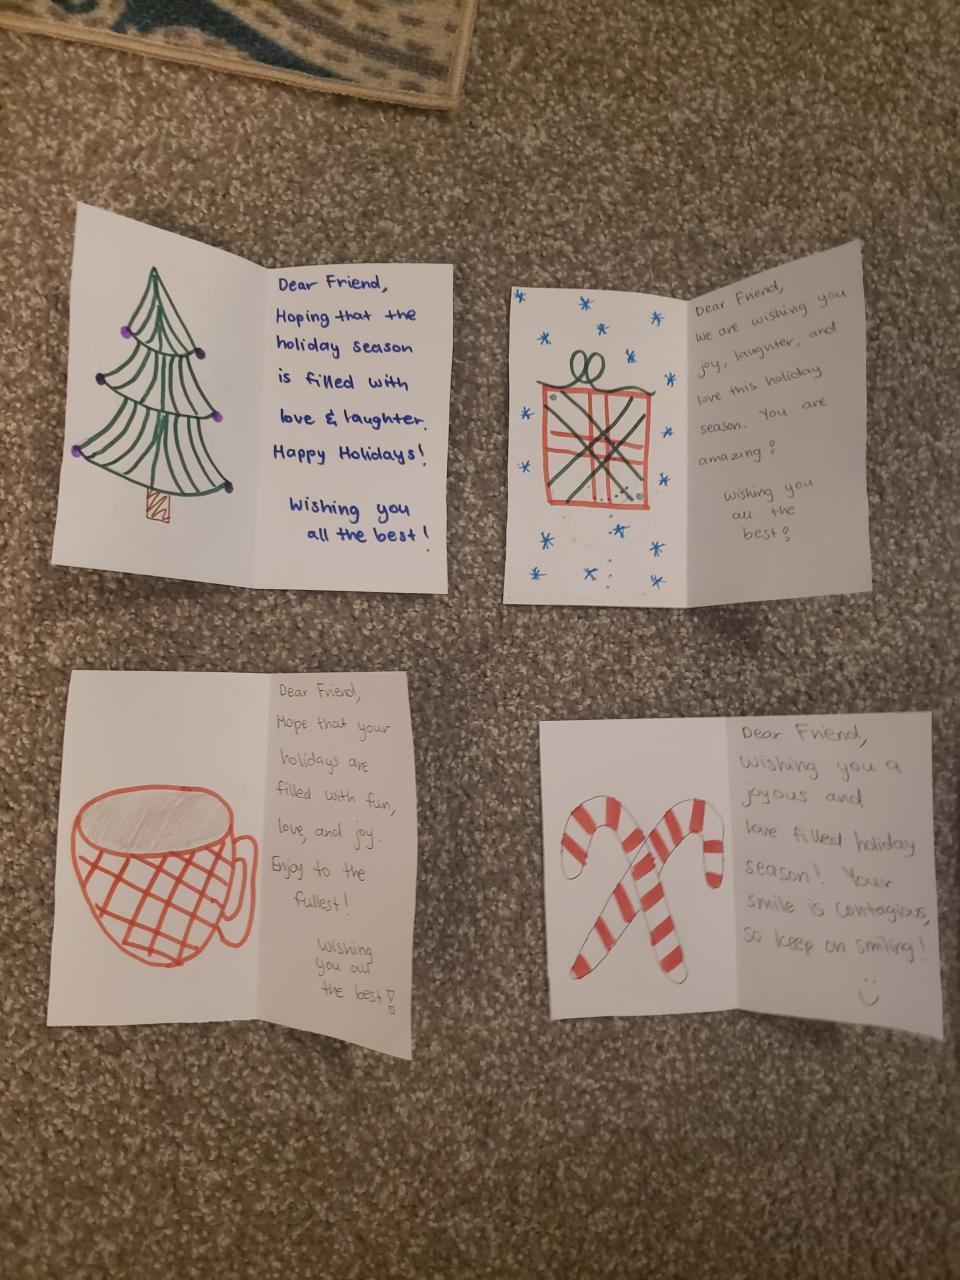 Dear Friend,
Hoping that the
holiday season
is filled with
love & laughter.
Happy Holidays!
Wishing you
all the best!
Dear Friend,
We are wishing you
joy, laughter, and
love this holiday
season. You are
amazing!
Wishing you
all the
best!
Dear Friend,
Hope that your
holidays are
filled with fun,
love, and joy.
Enjoy to the
fullest!
Wishing
you all
the best!
Dear Friend,
Wishing you a
joyous and
love filled holiday
season! Your
smile is contagious,
so keep on smiling!